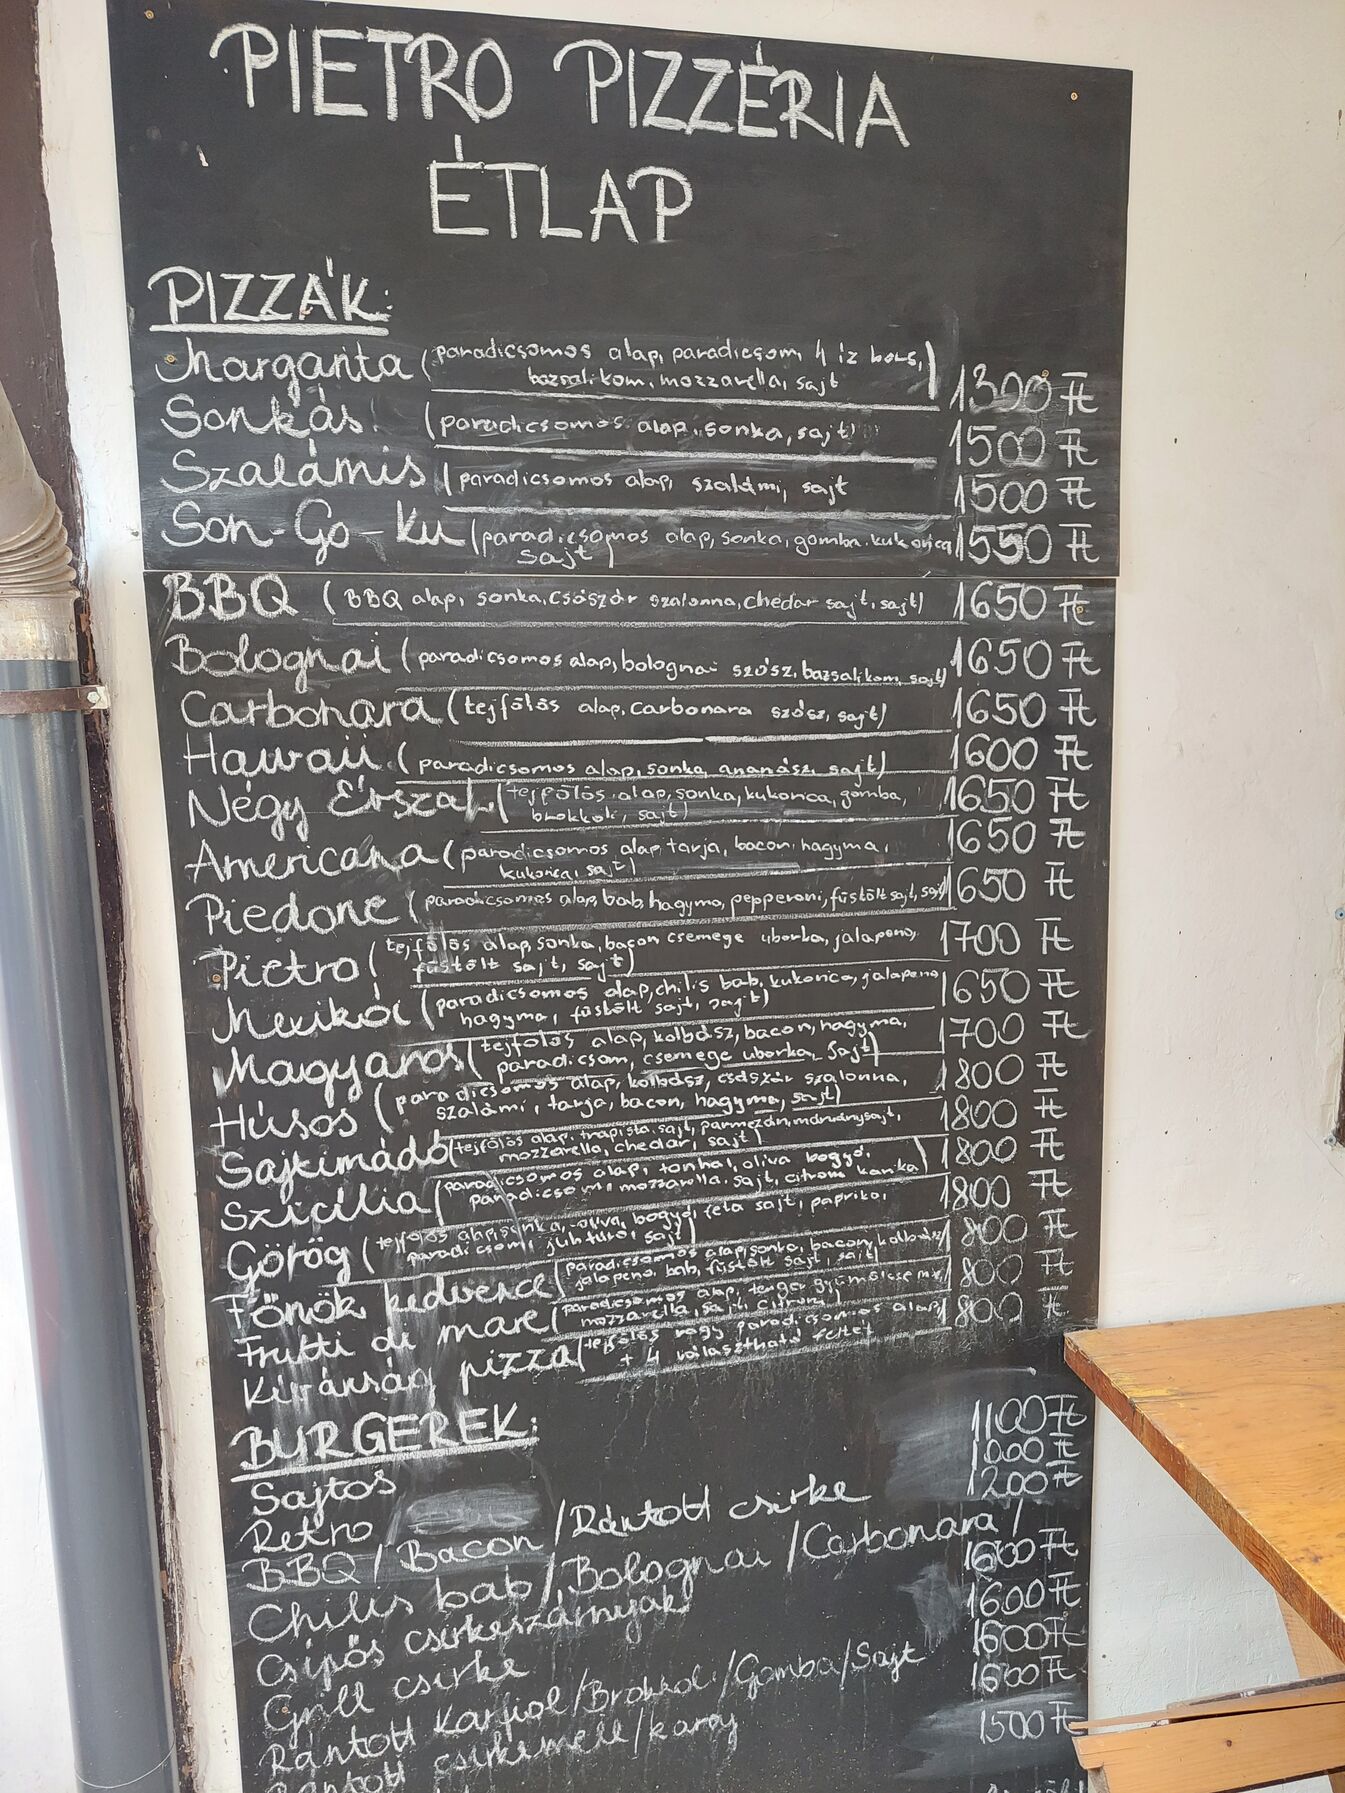 PIETRO PIZZÉRIA
ÉTLAP
PIZZÁK:
Margarita (paradicsomos alap, paradicsom, 4 íz bors, bazsalikom, mozzarella, sajt) 1300 Ft
Sonkás (paradicsomos alap, sonka, sajt) 1500 Ft
Szalámis (paradicsomos alap, szalámi, sajt 1500 Ft
Son-Go-Ku (paradicsomos alap, sonka, gomba, kukorica sajt) 1550 Ft
BBQ (BBQ alap, sonka, császár szalonna, chedar sajt, sajt) 1650 Ft
Bolognai (paradicsomos alap, bolognai szósz, bazsalikom, sajt) 1650 Ft
Carbonara (tejfölös alap, carbonara szósz, sajt) 1650 Ft
Hawaii (paradicsomos alap, sonka, ananász, sajt) 1600 Ft
Négy Évszak (tejfölös alap, sonka, kukorica, gomba, brokkoli, sajt) 1650 Ft
Americana (paradicsomos alap, tarja, bacon, hagyma, kukorica, sajt) 1650 Ft
Piedone (paradicsomos alap, bab, hagyma, pepperoni, füstölt sajt, sajt) 1650 Ft
Pietro (tejfölös alap, sonka, bacon csemege uborka, jalapeno, füstölt sajt, sajt) 1700 Ft
Mexikói (paradicsomos alap, chilis bab, kukorica, jalapeno hagyma, füstölt sajt, sajt) 1650 Ft
Magyaros (tejfölös alap, kolbász, bacon, hagyma, paradicsom, csemege uborka, sajt) 1700 Ft
Húsos (paradicsomos alap, kolbász, császár szalonna, szalámi, tarja, bacon, hagyma, sajt) 1800 Ft
Sajtimádó (tejfölös alap, trapista sajt, parmezán, márványsajt, mozzarella, chedar, sajt) 1800 Ft
Szicília (paradicsomos alap, tonhal, oliva bogyó, paradicsom, mozzarella, sajt, citrom karika) 1800 Ft
Görög (tejfölös alap, sonka, oliva bogyó, feta sajt, paprika, paradicsom, juhtúró, sajt) 1800 Ft
Főnök kedvence (paradicsomos alap, sonka, bacon, kolbász, jalapeno, bab, füstölt sajt, sajt) 1800 Ft
Frutti di mare (paradicsomos alap, tenger gyümölcse mix, mozzarella, sajt, citrom) 1800 Ft
Kívánság pizza (tejfölös vagy paradicsomos alap, + 4 választható feltét 1800 Ft
BURGEREK:
Sajtos 1100 Ft
Retro 1000 Ft
BBQ / Bacon / Rántott csirke 1200 Ft
Chilis bab / Bolognai / Carbonara /
Csípős csirkeszárnyak 1600 Ft
Grill csirke 1600 Ft
Rántott Karfiol / Brokkoli / Gomba / Sajt 1600 Ft
Rántott csirkemell / karaj 1600 Ft
1500 Ft